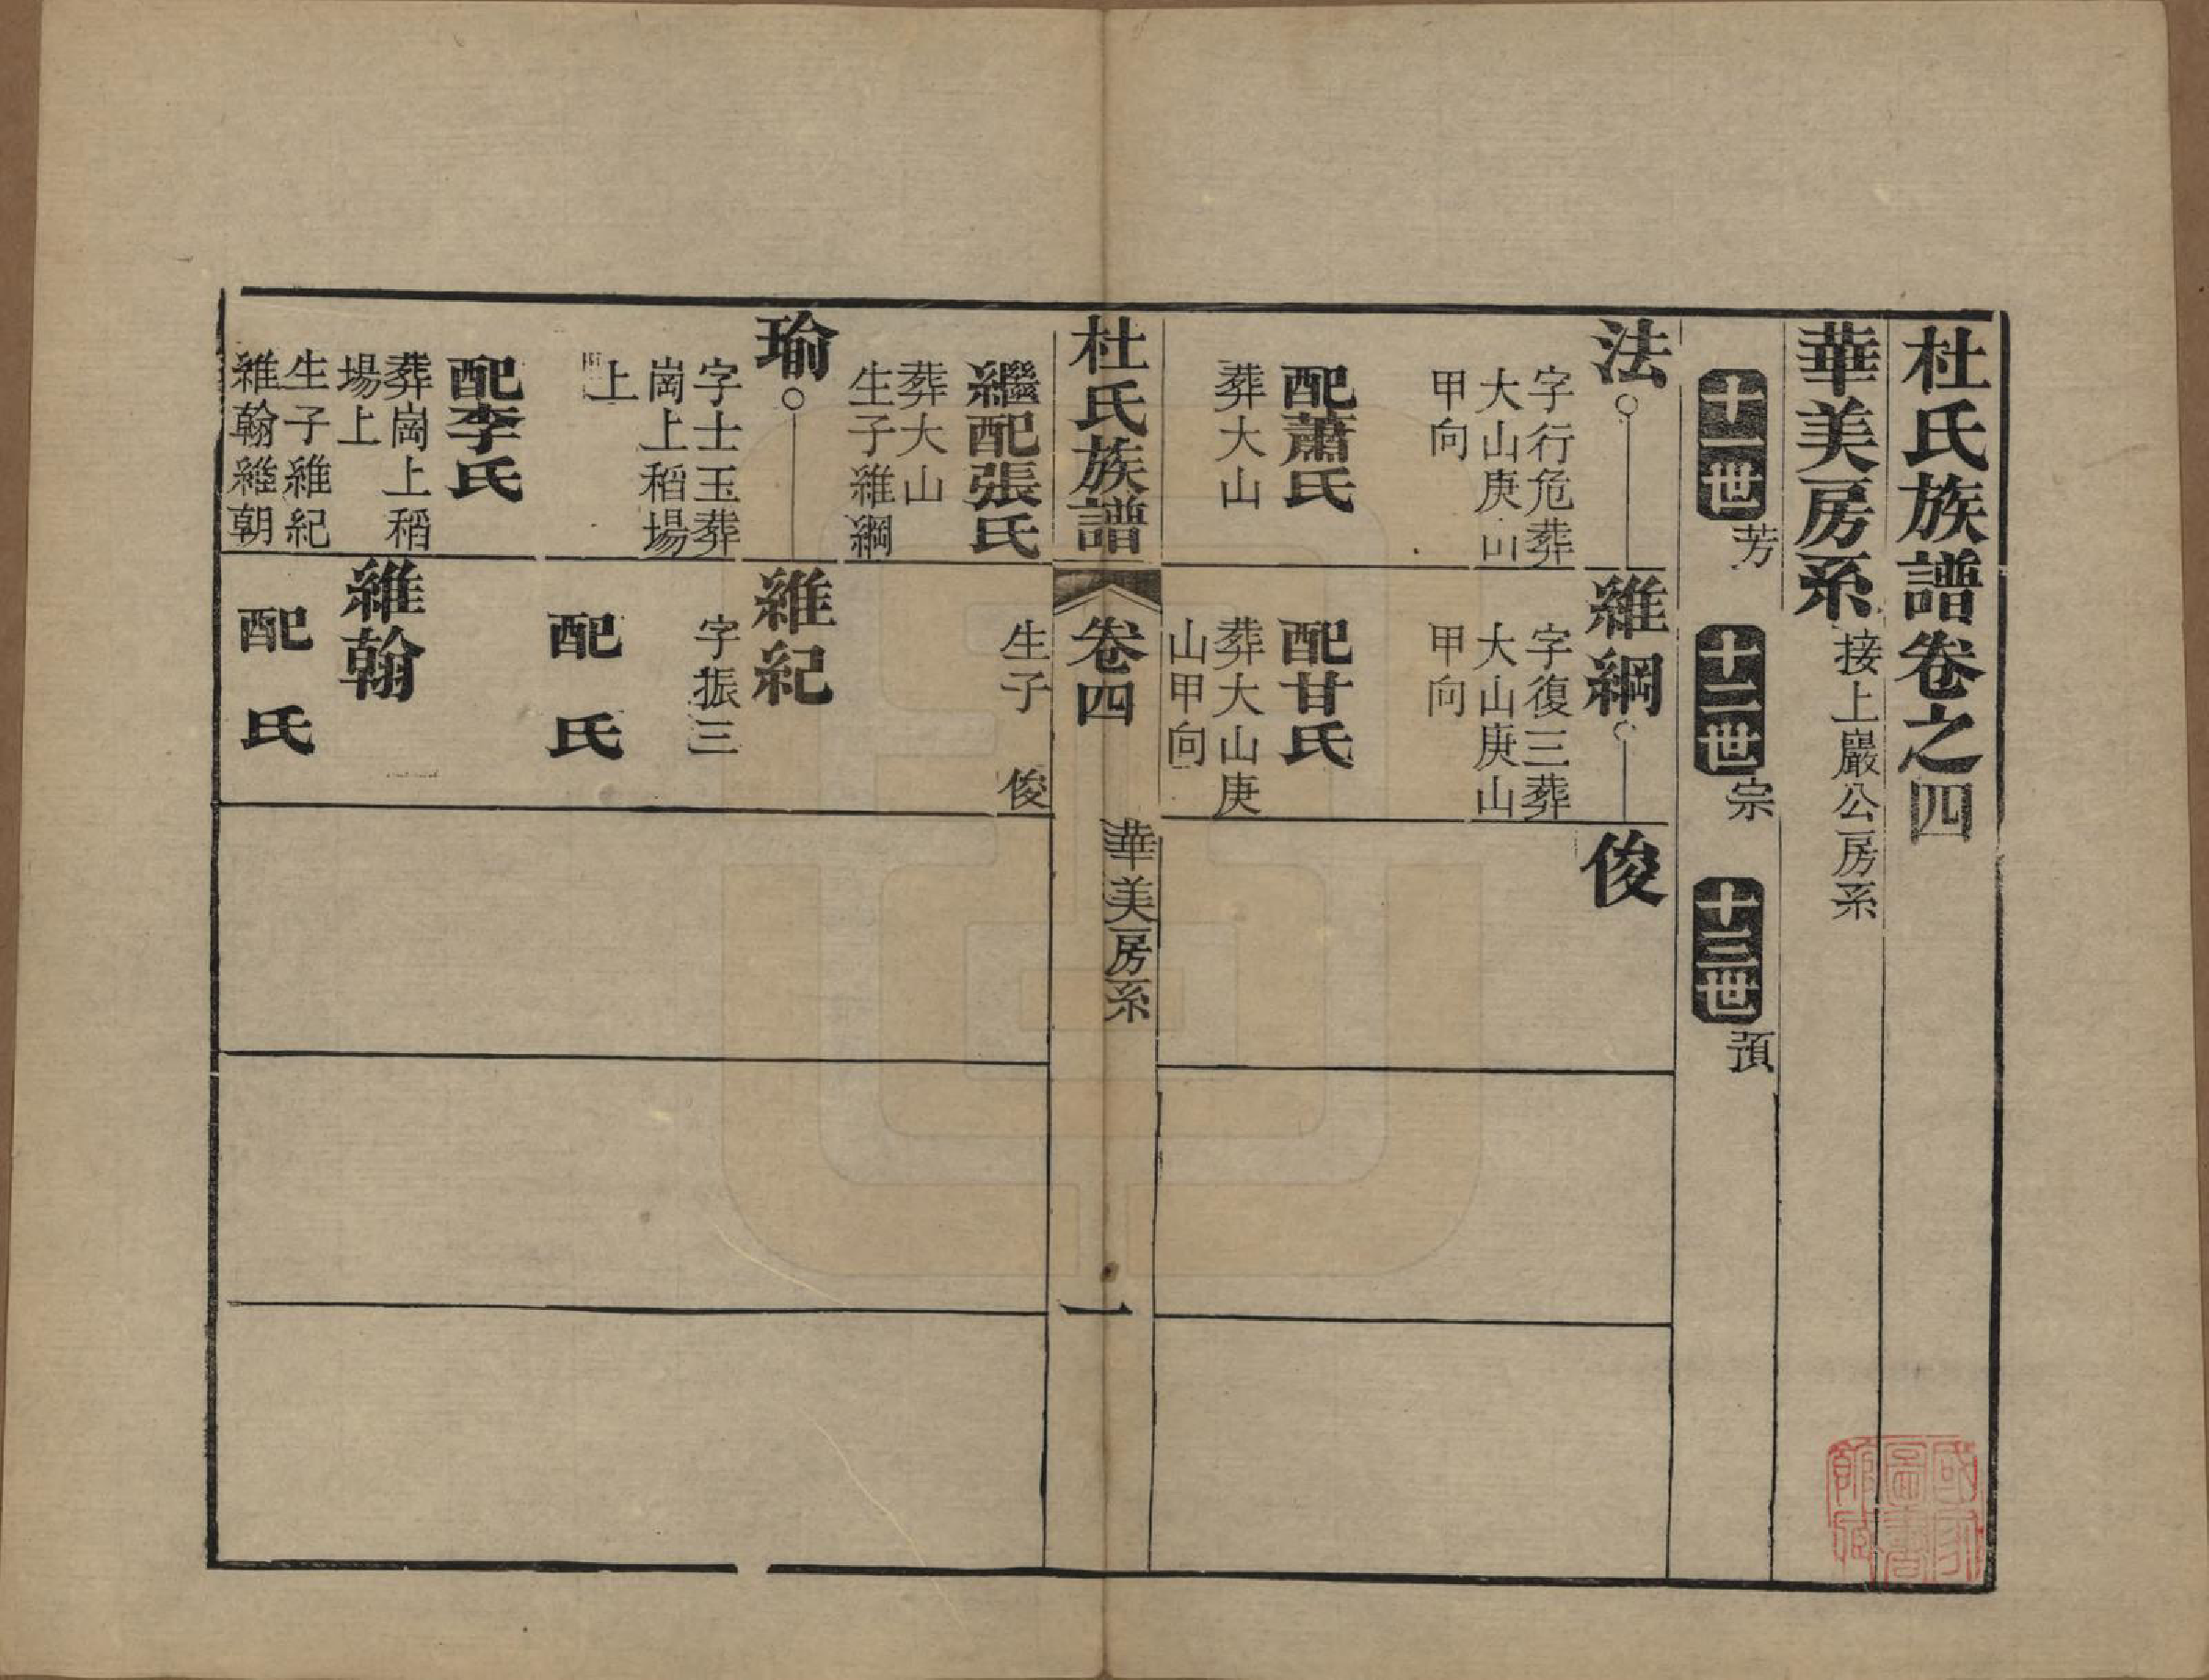 杜氏族譜卷之四
華美房系 接上巖公房系
十一世 芳
十二世 宗
十三世 預
法
字行危葬
大山庚山
甲向
配蕭氏
葬大山
維綱
字復三葬
大山庚山
甲向
配甘氏
葬大山庚
山甲向
俊
杜氏族譜
卷四
華美房系
一
繼配張氏
葬大山
生子維綱
生子 俊
瑜
字士玉葬
崗上稻場
上
配李氏
葬崗上稻
場上
生子維紀
維翰維朝
維紀
字振三
配 氏
維翰
配 氏
國家
圖書
館藏